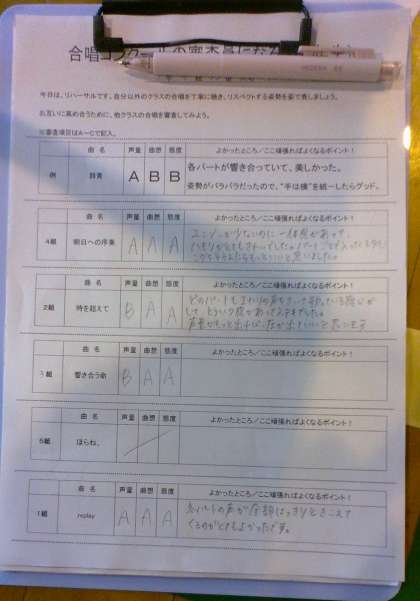 今日は、リハーサルです。自分以外のクラスの合唱を丁寧に聴き、リスペクトする姿勢を姿で表しましょう。
お互いに高め合うために、他クラスの合唱を審査してみよう。
※審査項目はA~Cで記入。
曲 名 声量 曲想 態度 よかったところ／ここ頑張ればよくなるポイント！
例 群青 A B B 各パートが響き合っていて、美しかった。
姿勢がバラバラだったので、“手は横”を統一したらグッド。
曲 名 声量 曲想 態度 よかったところ／ここ頑張ればよくなるポイント！
4組 明日への序奏 A A A ユニゾンが少ないのに一体感があって、
ハモりがとてもきれいでした。
曲 名 声量 曲想 態度 よかったところ／ここ頑張ればよくなるポイント！
2組 時を超えて B A A どのパートもまわりの声をきいて歌っている感じが
して、
声量がもっと出せば、と思います
曲 名 声量 曲想 態度 よかったところ／ここ頑張ればよくなるポイント！
組 響き合う命 B A A
曲 名 声量 曲想 態度 よかったところ／ここ頑張ればよくなるポイント！
5組 ほらね、
曲 名 声量 曲想 態度 よかったところ／ここ頑張ればよくなるポイント！
1組 replay A A A 各パートの声が全部はっきりときこえて
くるのがとてもよかったです。